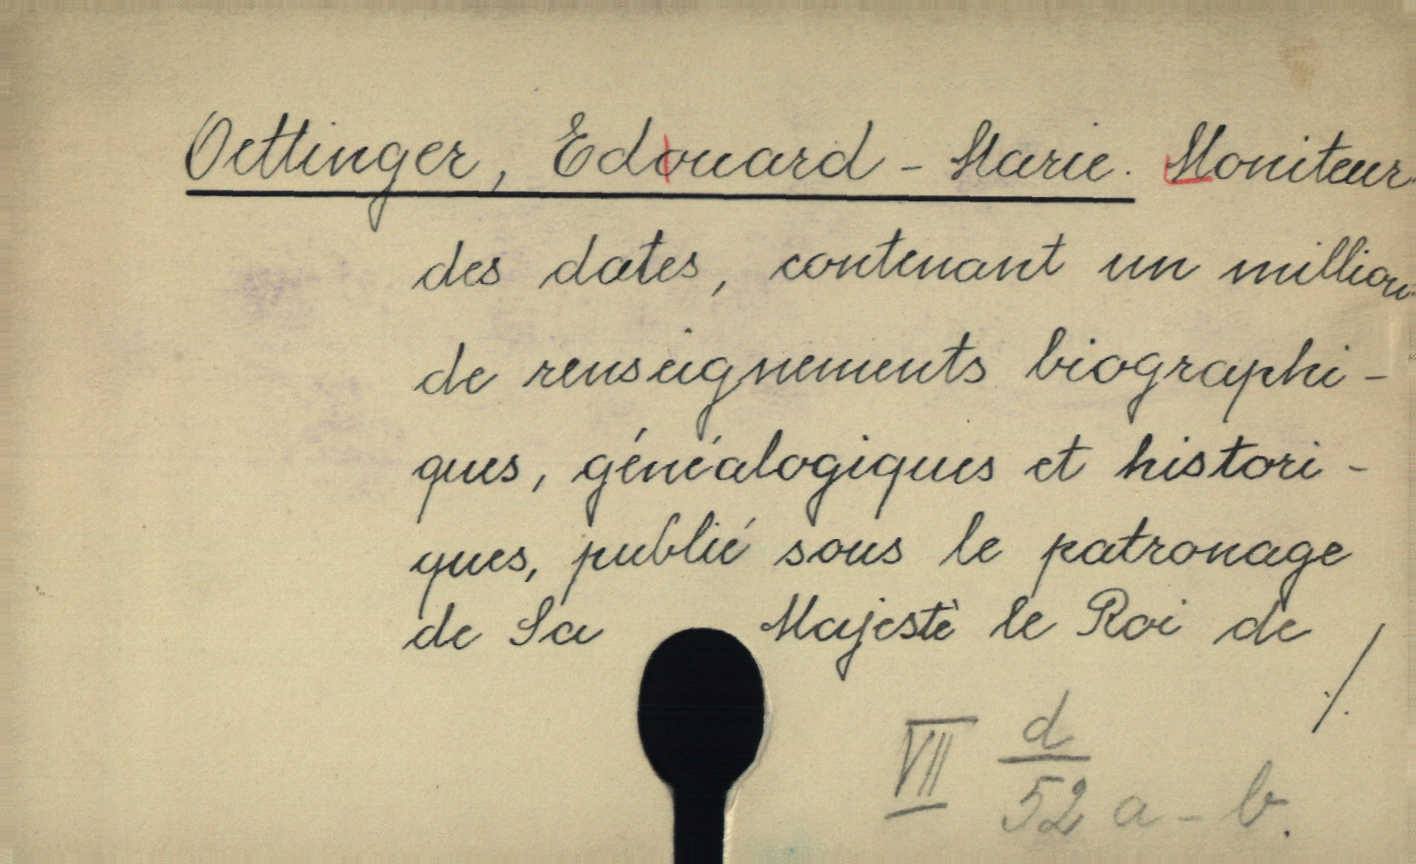 Oettinger, Edouard - Marie. Moniteur
des dates, contenant un million
de renseignements biographi-
ques, généalogiques et histori-
ques, publié sous le patronage
de Sa Majesté le Roi de ./.
VII d/52 a - b.